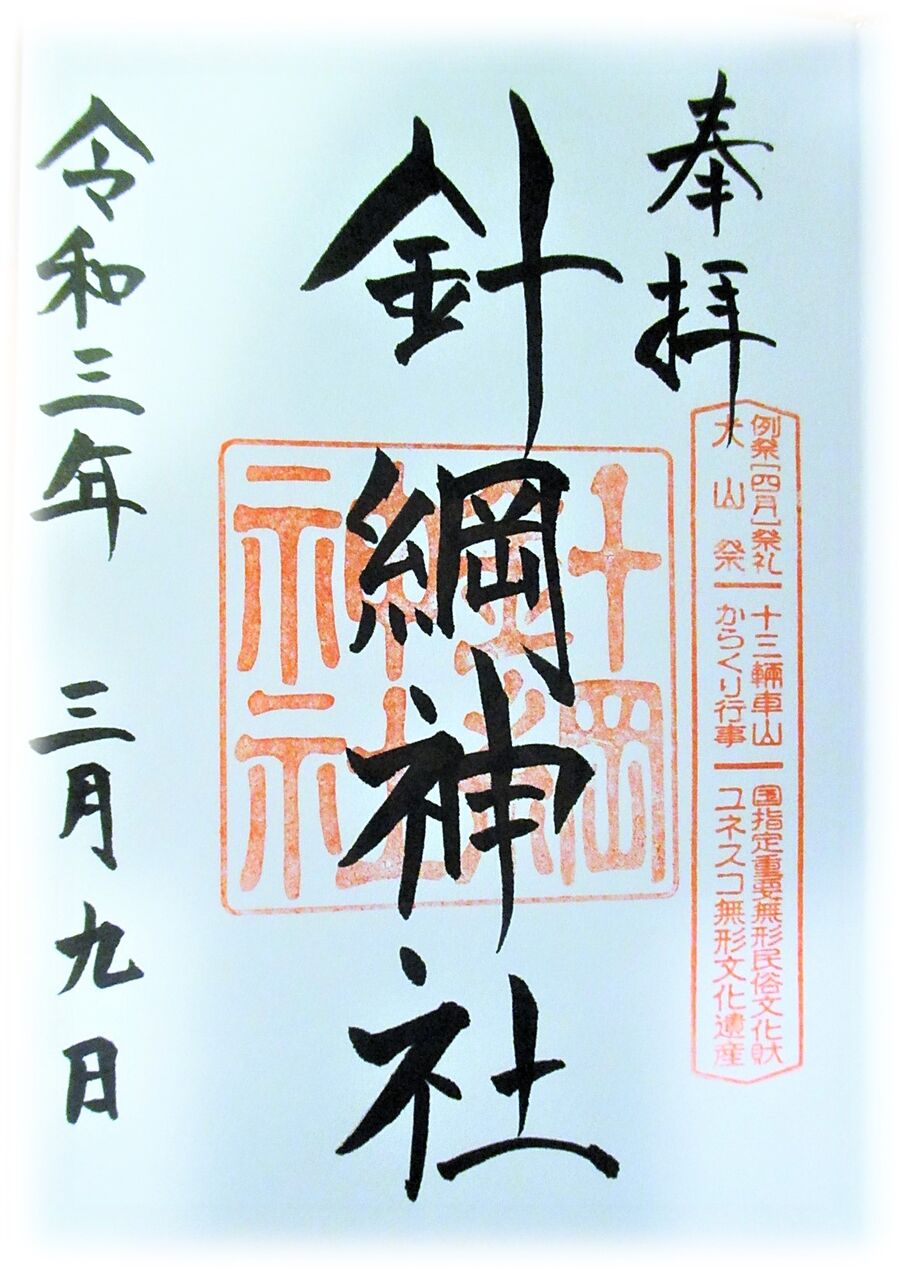 奉拝
例祭[四月]祭礼 十三輛車山 国指定重要無形民俗文化財
犬山祭 からくり行事 ユネスコ無形文化遺産
針綱神社
針綱神社
令和三年 三月九日